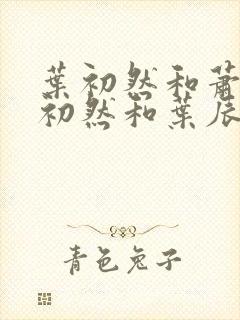 葉初然和蕭
初然和葉辰
青色兔子